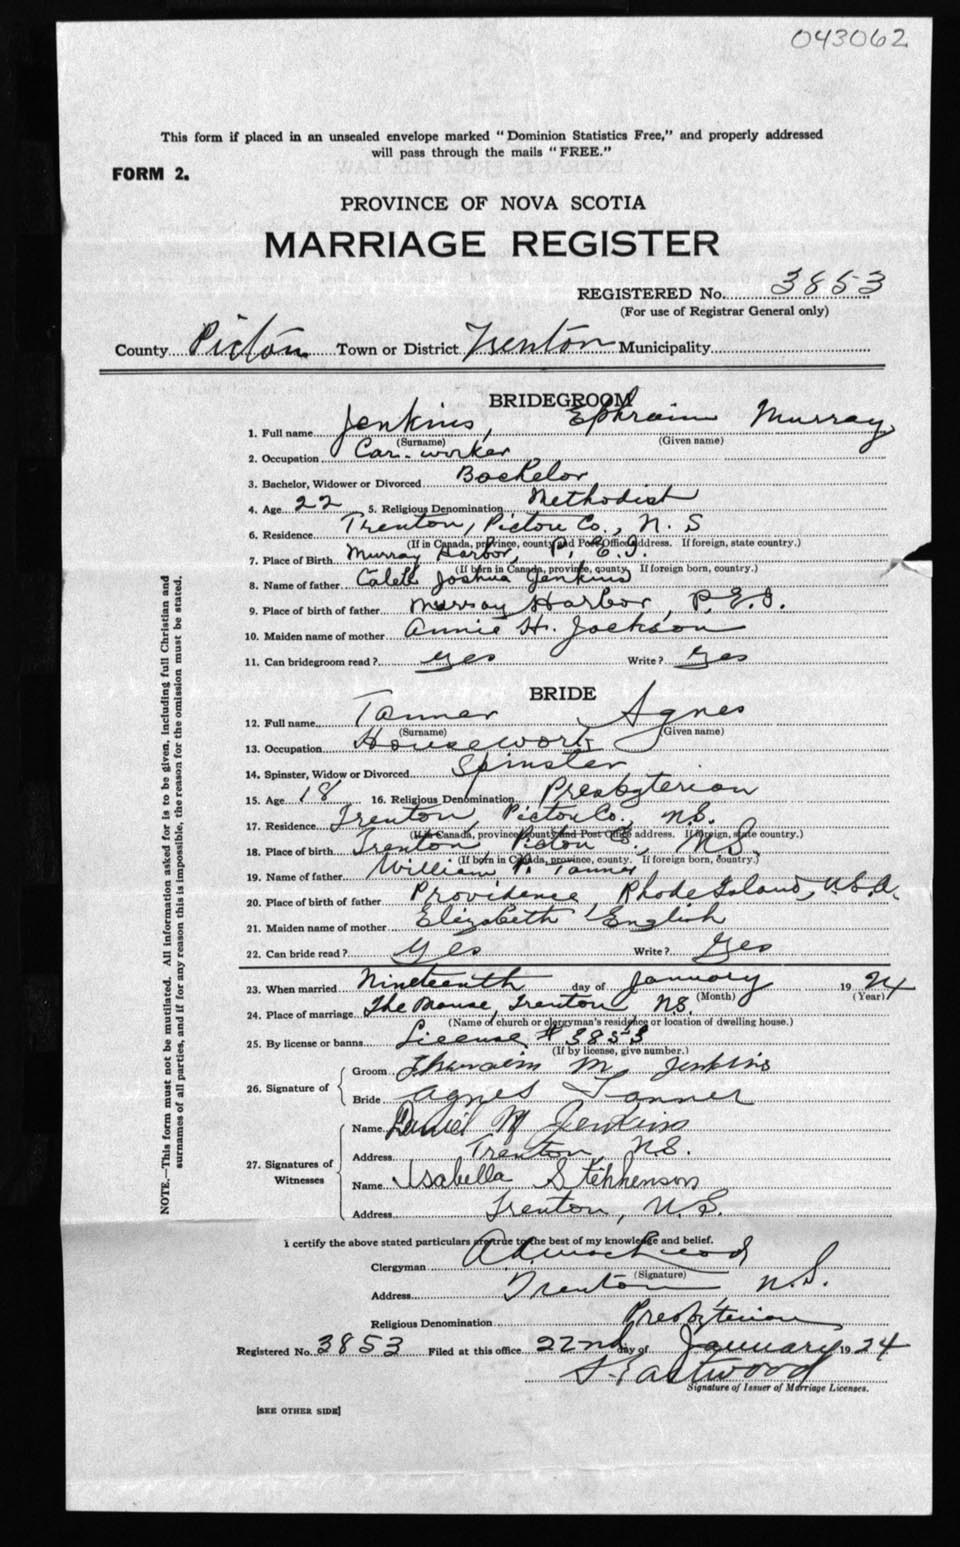 043062
This form if placed in an unsealed envelope marked "Dominion Statistics Free," and properly addressed
will pass through the mails "FREE."
FORM 2.
PROVINCE OF NOVA SCOTIA
MARRIAGE REGISTER
REGISTERED No. 3853
(For use of Registrar General only)
County Pictou Town or District Trenton Municipality
BRIDEGROOM
1. Full name Jenkins, Ephraim Murray
(Surname) (Given name)
2. Occupation Car-worker
3. Bachelor, Widower or Divorced Bachelor
4. Age 22 5. Religious Denomination Methodist
6. Residence Trenton, Pictou Co., N. S
(If in Canada, province, county and Post Office address. If foreign, state country.)
7. Place of Birth Murray Harbor, P. E. I.
(If born in Canada, province, county. If foreign born, country.)
8. Name of father Caleb Joshua Jenkins
9. Place of birth of father Murray Harbor, P.E.I.
10. Maiden name of mother Annie H. Jackson
11. Can bridegroom read? Yes Write? Yes
BRIDE
12. Full name Tanner Agnes
(Surname) (Given name)
13. Occupation Housework
14. Spinster, Widow or Divorced Spinster
15. Age 18 16. Religious Denomination Presbyterian
17. Residence Trenton, Pictou Co., N.S.
(If in Canada, province county and Post Office address. If foreign, state country.)
18. Place of birth Trenton, Pictou Co., N.S.
(If born in Canada, province, county. If foreign born, country.)
19. Name of father William P. Tanner
20. Place of birth of father Providence Rhode Island, U.S.A.
21. Maiden name of mother Elizabeth English
22. Can bride read? Yes Write? Yes
23. When married Nineteenth day of January 1924
(Month) (Year)
24. Place of marriage The Manse, Trenton N.S.
(Name of church or clergyman's residence or location of dwelling house.)
25. By license or banns License # 3853
(If by license, give number.)
26. Signature of
Groom M. Jenkins
Bride Agnes Tanner
27. Signatures of Witnesses
Name Daniel M Jenkins
Address Trenton, N.S.
Name Isabella Stephenson
Address Trenton, N.S.
I certify the above stated particulars are true to the best of my knowledge and belief.
Clergyman
(Signature)
Address Trenton N.S.
Religious Denomination Presbyterian
Registered No. 3853 Filed at this office 22nd day of January 1924
Eastwood
Signature of Issuer of Marriage Licenses.
[SEE OTHER SIDE]
NOTE.—This form must not be mutilated. All information asked for is to be given, including full Christian and
surnames of all parties, and if for any reason this is impossible, the reason for the omission must be stated.